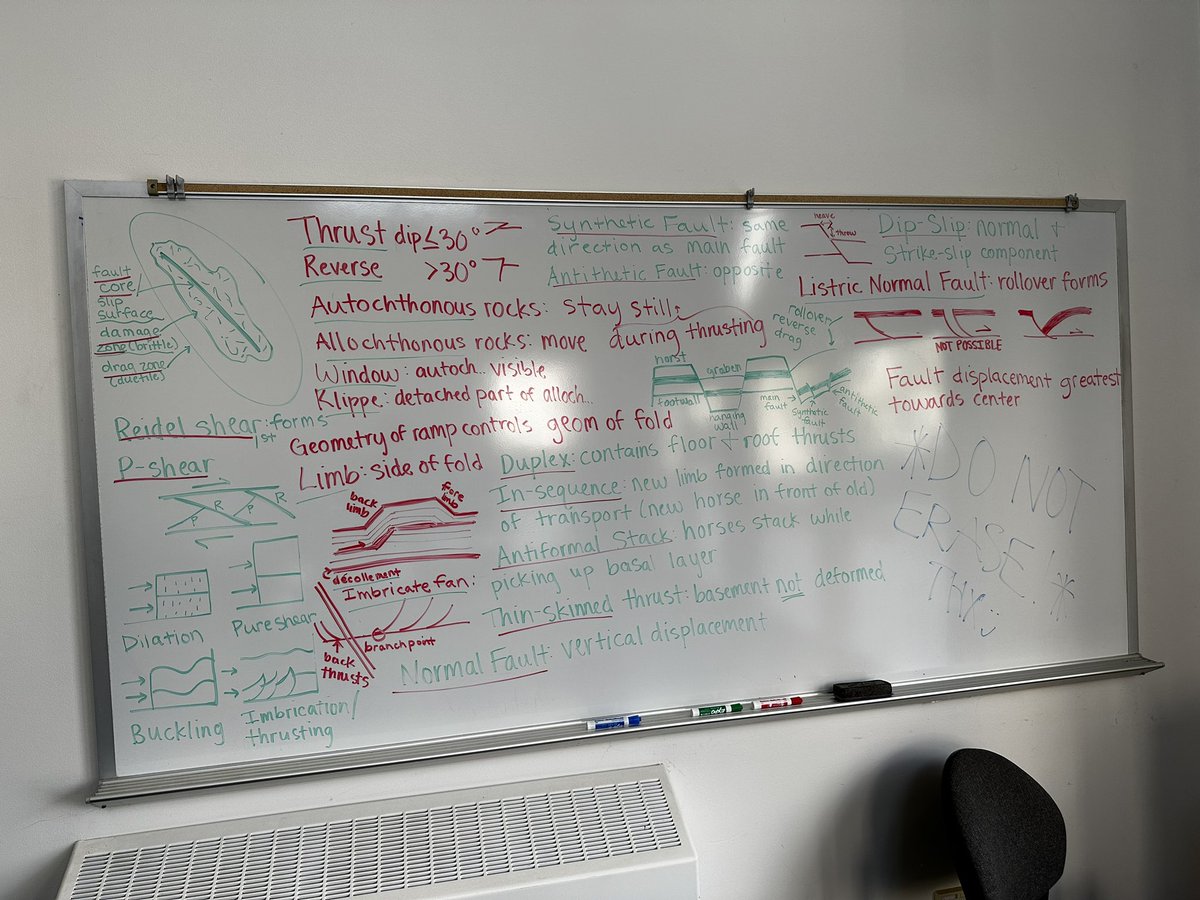 fault
core/
slip
surface
damage
zone (brittle)
drag zone
(ductile)
Reidel shear: forms
1st
P-shear
R
R
P
P
Dilation
Pure shear
Buckling
Imbrication/
thrusting
Thrust dip ≤30°
Reverse >30°
Autochthonous rocks: stay still
Allochthonous rocks: move during thrusting
Window: autoch... visible
Klippe: detached part of alloch...
Geometry of ramp controls geom of fold
Limb: side of fold
back
limb
fore
limb
décollement
Imbricate fan:
branch point
back
thrusts
Synthetic Fault: same
direction as main fault
Antithetic Fault: opposite
heave
throw
Dip-Slip: normal &
Strike-slip component
Listric Normal Fault: rollover forms
NOT POSSIBLE
rollover/
reverse
drag
horst
graben
footwall
hanging
wall
main
fault
synthetic
fault
antithetic
fault
Fault displacement greatest
towards center
Duplex: contains floor & roof thrusts
In-sequence: new limb formed in direction
of transport (new horse in front of old)
Antiformal Stack: horses stack while
picking up basal layer
Thin-skinned thrust: basement not deformed
Normal Fault: vertical displacement
*DO NOT
ERASE! *
Thx :)